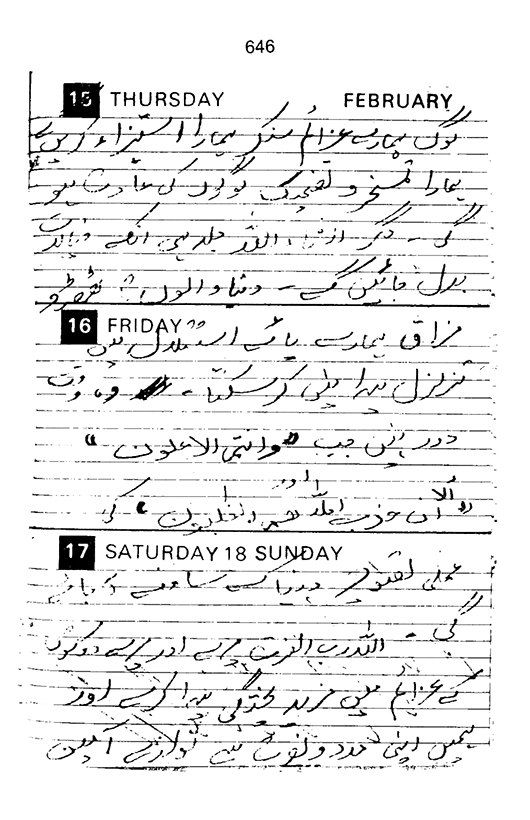 646
15 THURSDAY FEBRUARY
لوگ ہمارے عزائم سنکر ہمارا استہزاء کریں گے
ہمارا تمسخر و تضحیک لوگوں کی عادت ہو
گی - مگر انشاء اللہ جلد ہی انکے خیالات
بدل جائیں گے - دنیا والوں کا
16 FRIDAY
مزاق ہمارے پائے استقلال میں
تزلزل پیدا نہیں کر سکتا - وہ وقت
دور نہیں جب "وانتم الاعلون"
اور
"الا ان حزب اللہ هم الغلبون" کی
17 SATURDAY 18 SUNDAY
عملی تصویر دنیا کے سامنے آ جائے
گی - اللہ رب العزت میرے اور میرے دوستوں
کے عزائم میں مزید پختگی پیدا کرے اور
ہمیں اپنی مدد و نصرت سے نوازے آمین